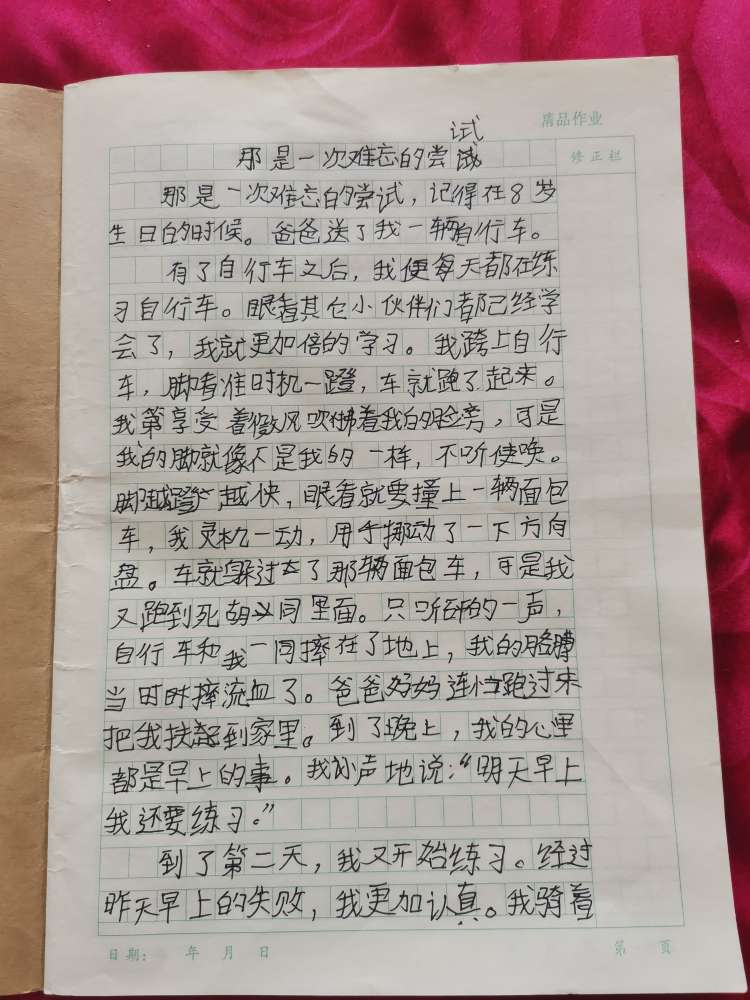 席品作业
修正栏
试
那是一次难忘的尝试
那是一次难忘的尝试，记得在8岁
生日的时候。爸爸送了我一辆自行车。
有了自行车之后，我便每天都在练
习自行车。眼看其仓小伙伴们都已经学
会了，我就更加倍的学习。我跨上自行
车，脚看准时机一蹬，车就跑了起来。
我第享受着微风吹拂着我的脸旁，可是
我的脚就像不是我的一样，不听使唤。
脚越蹬越快，眼看就要撞上一辆面包
车，我灵机一动，用手挪动了一下方向
盘。车就躲过去了那辆面包车，可是我
又跑到死胡同里面。只听砰的一声，
自行车和我一同摔在了地上，我的胳膊
当时时摔流血了。爸爸妈妈连忙跑过来
把我扶起到家里。到了晚上，我的心里
都是早上的事。我小声地说：“明天早上
我还要练习。”
到了第二天，我又开始练习。经过
昨天早上的失败，我更加认真。我骑着
日期： 年 月 日
第 页